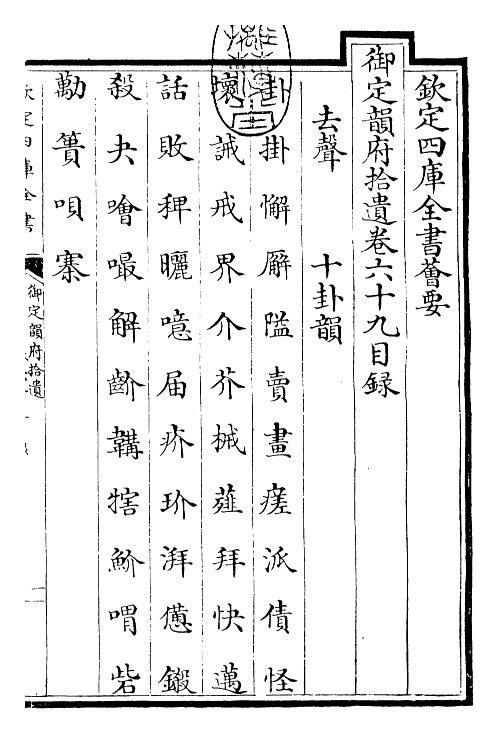 欽定四庫全書薈要
御定韻府拾遺卷六十九目録
去聲　十卦韻
卦掛懈廨隘賣畫瘥派債怪
壞誡戒界介芥械薤拜快邁
話敗稗曬噫届疥玠湃憊鎩
殺夬噲嘬解齘鞲犗魪喟砦
勱蕢唄寨
欽定四庫全書
御定韻府拾遺